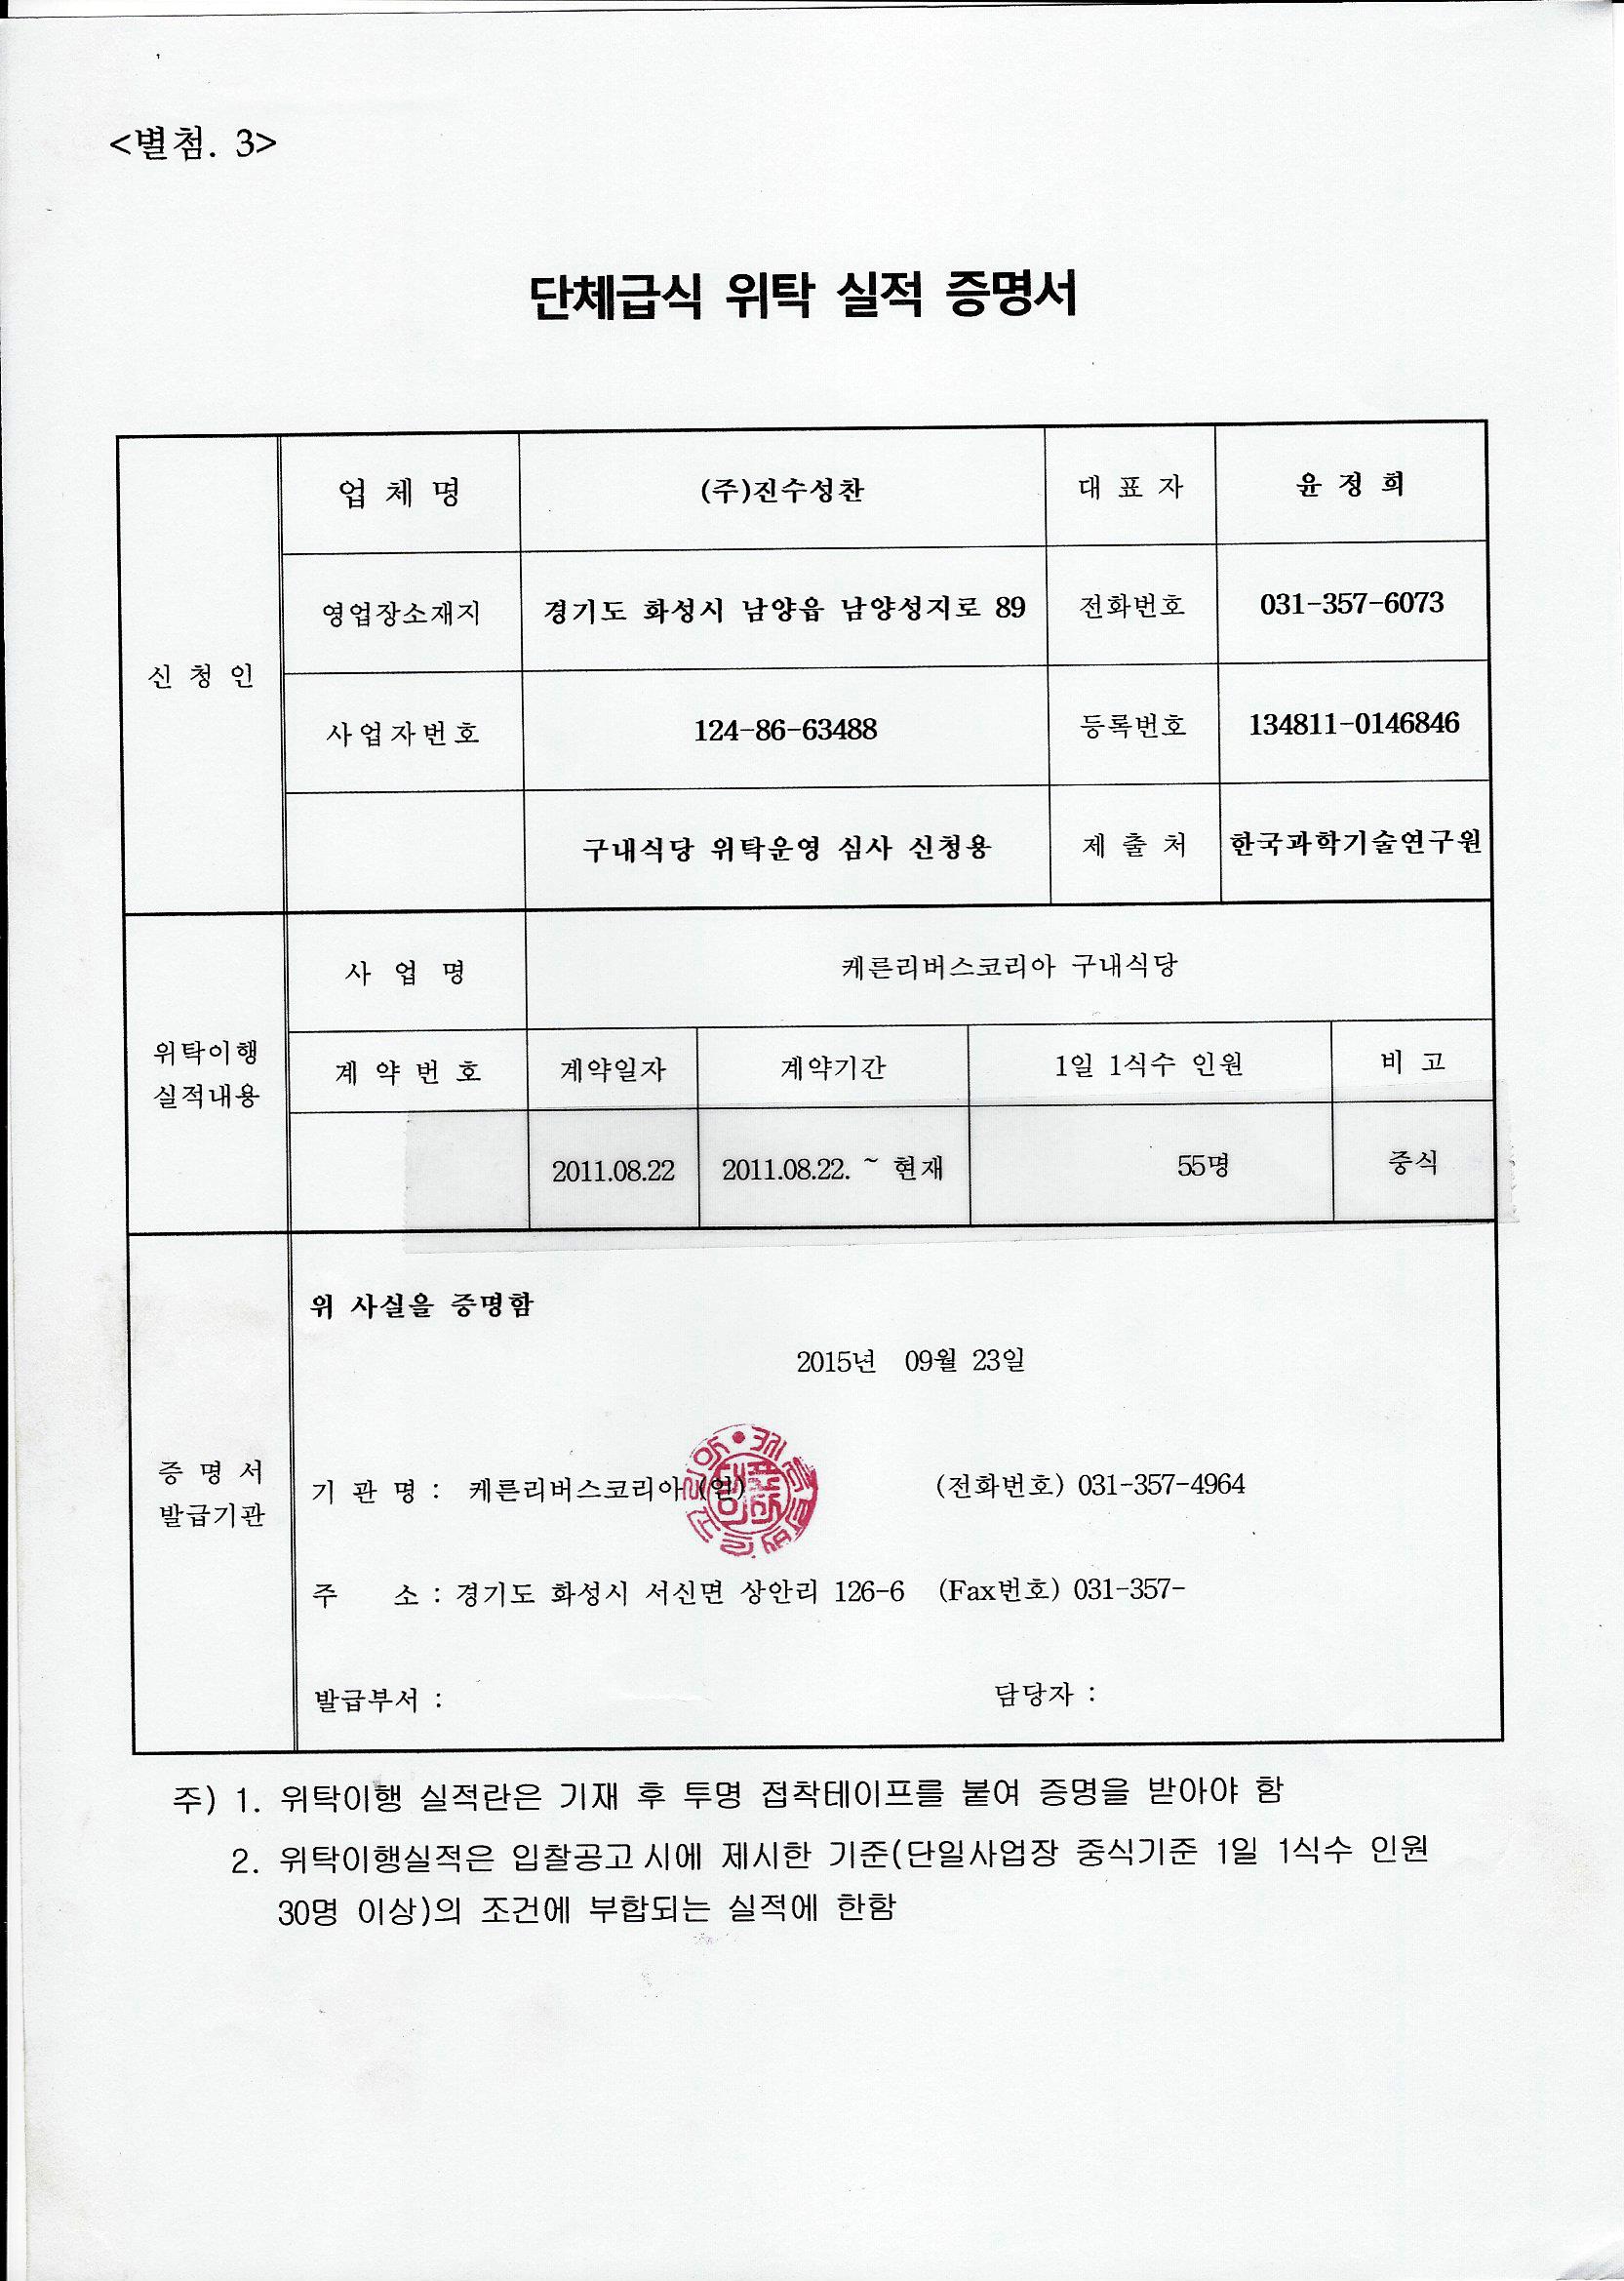 <별첨. 3>
단체급식 위탁 실적 증명서
신 청 인
업 체 명
(주)진수성찬
대 표 자
윤 정 희
영업장소재지
경기도 화성시 남양읍 남양성지로 89
전화번호
031-357-6073
사업자번호
124-86-63488
등록번호
134811-0146846
구내식당 위탁운영 심사 신청용
제 출 처
한국과학기술연구원
위탁이행
실적내용
사 업 명
케른리버스코리아 구내식당
계 약 번 호
계약일자
계약기간
1일 1식수 인원
비 고
2011.08.22
2011.08.22. ~ 현재
55명
중식
증 명 서
발급기관
위 사실을 증명함
2015년 09월 23일
기 관 명 : 케른리버스코리아 (인) (전화번호) 031-357-4964
주 소 : 경기도 화성시 서신면 상안리 126-6 (Fax번호) 031-357-
발급부서 : 담당자 :
주) 1. 위탁이행 실적란은 기재 후 투명 접착테이프를 붙여 증명을 받아야 함
2. 위탁이행실적은 입찰공고 시에 제시한 기준(단일사업장 중식기준 1일 1식수 인원
30명 이상)의 조건에 부합되는 실적에 한함